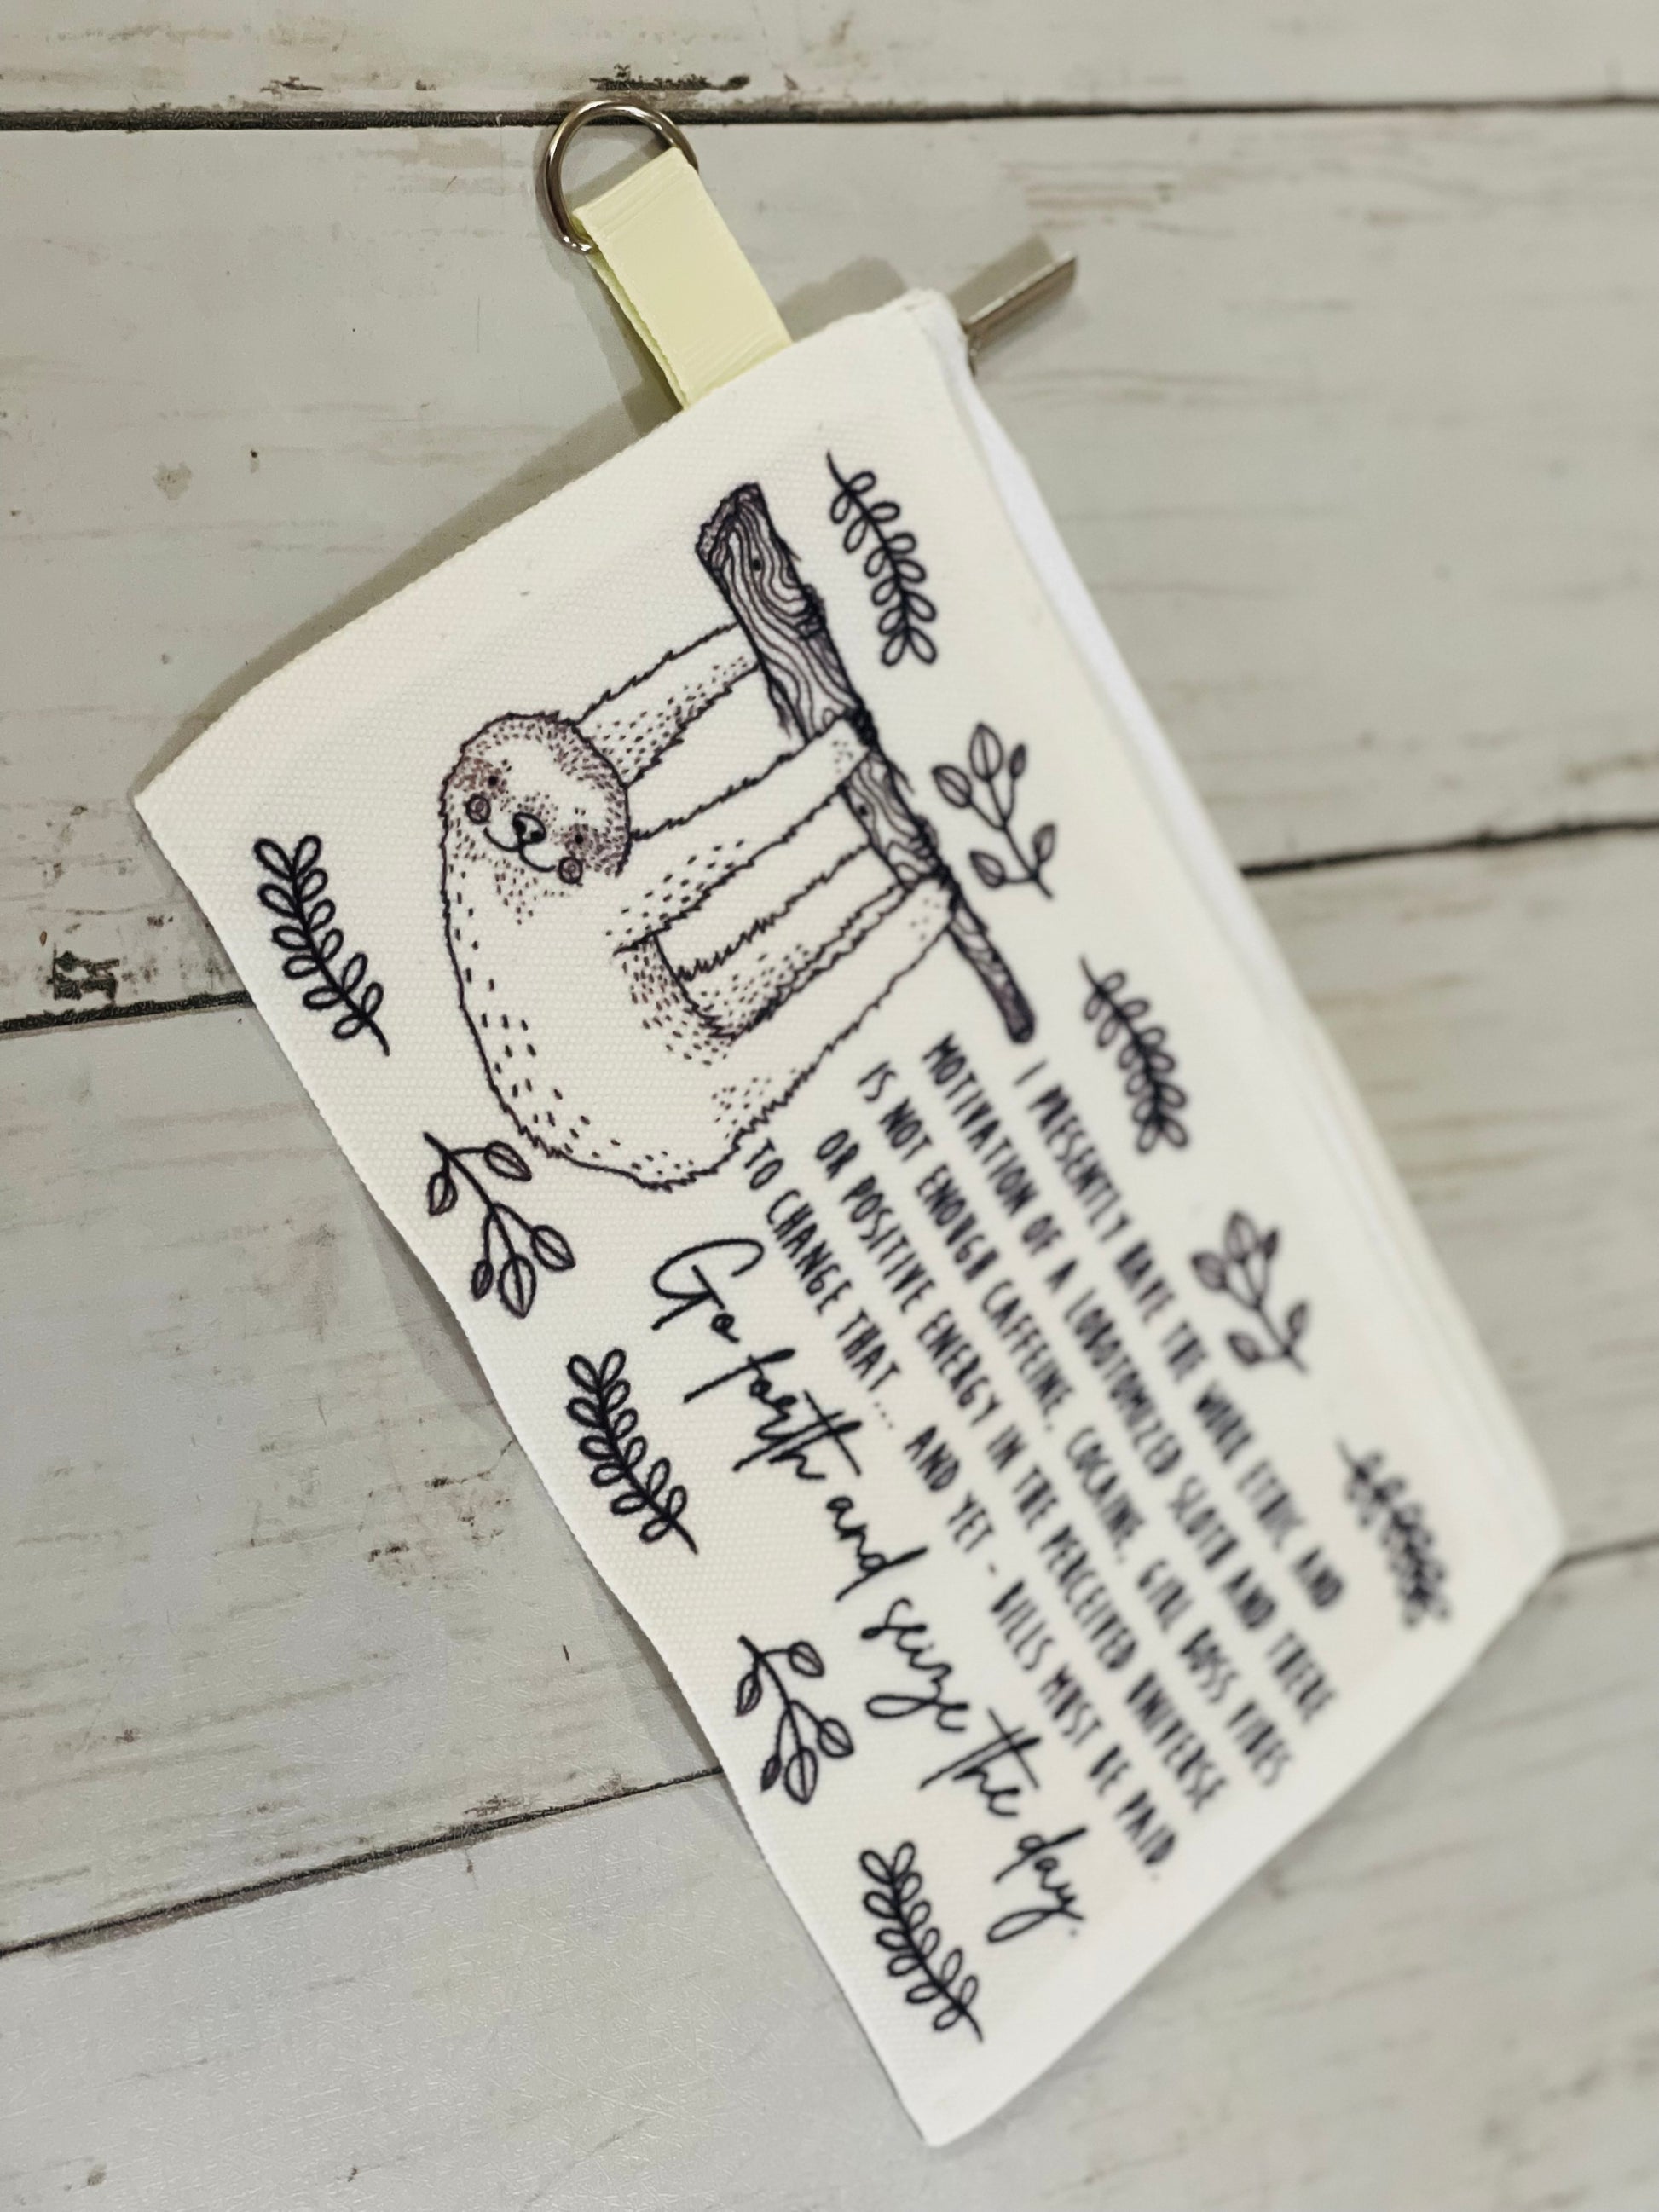 I PRESENTLY HAVE THE WORK ETHIC AND
MOTIVATION OF A LOBOTOMIZED SLOTH AND THERE
IS NOT ENOUGH CAFFEINE, COCAINE, GIRL BOSS VIBES
OR POSITIVE ENERGY IN THE PERCEIVED UNIVERSE
TO CHANGE THAT... AND YET - BILLS MUST BE PAID.
Go forth and seize the day.